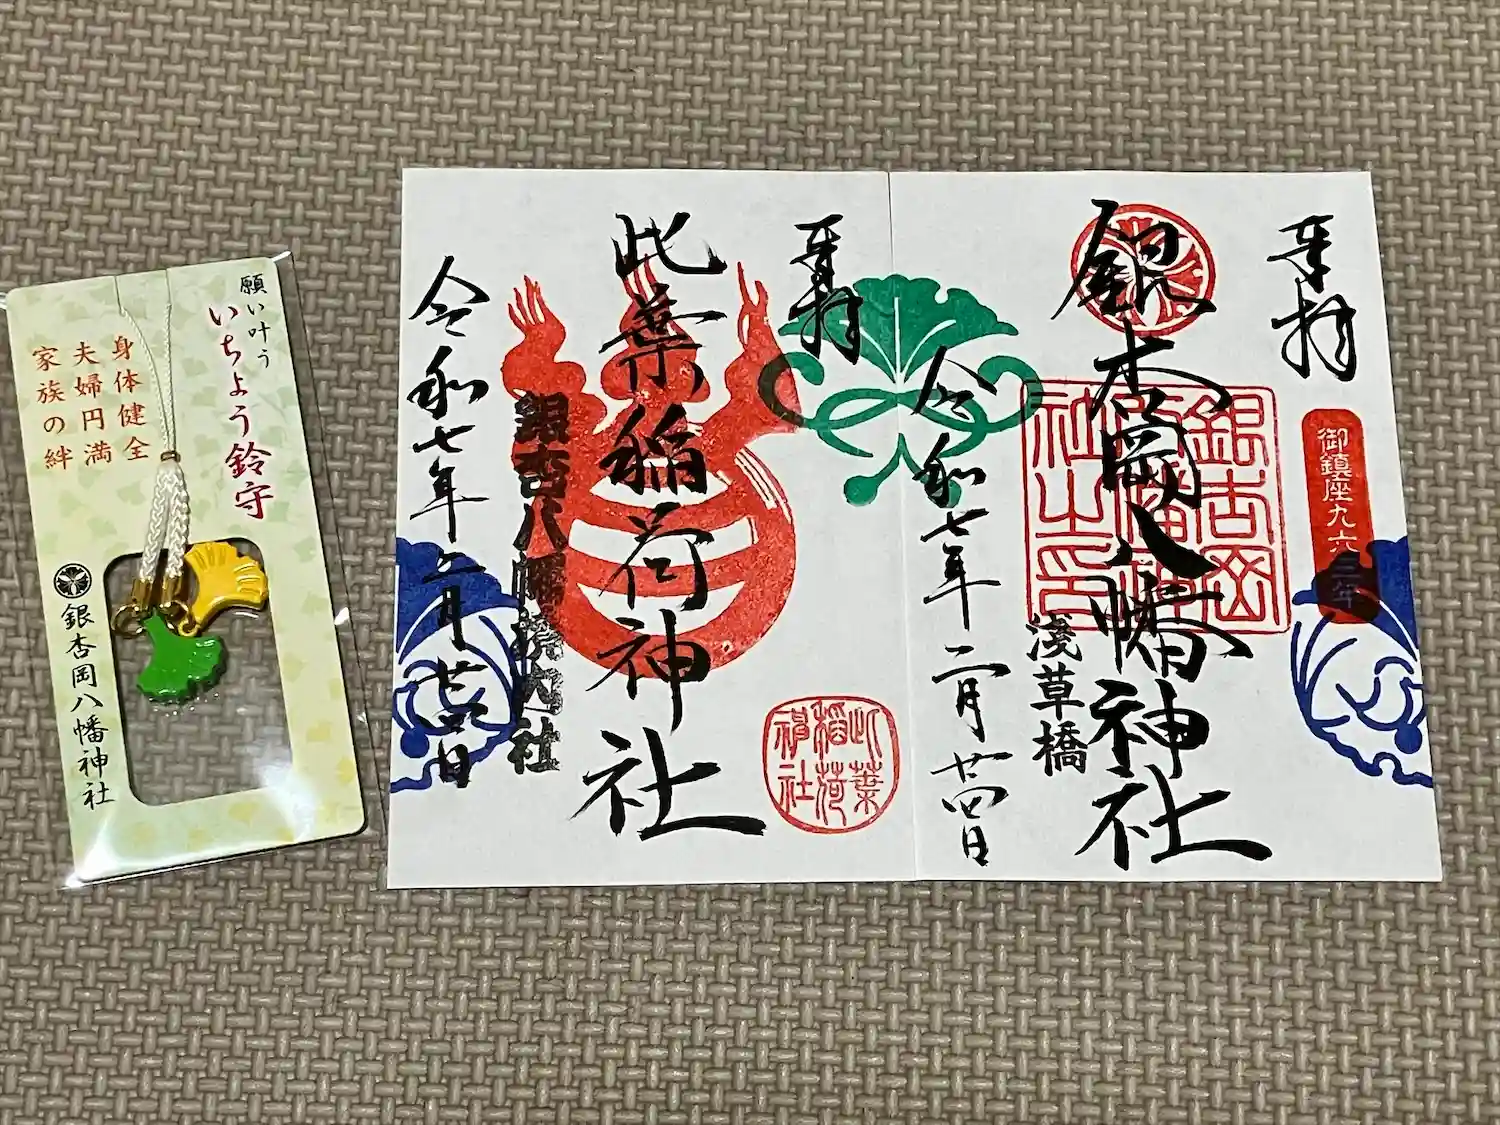 願い叶う
いちょう鈴守
身体健全
夫婦円満
家族の絆
銀杏岡八幡神社
奉拝
此葉稲荷神社
銀杏八幡境内社
令和七年二月廿四日
此葉
稲荷
神社
奉拝
御鎮座九六三年
銀杏岡八幡神社
銀杏岡
八幡神
社之印
浅草橋
令和七年二月廿四日